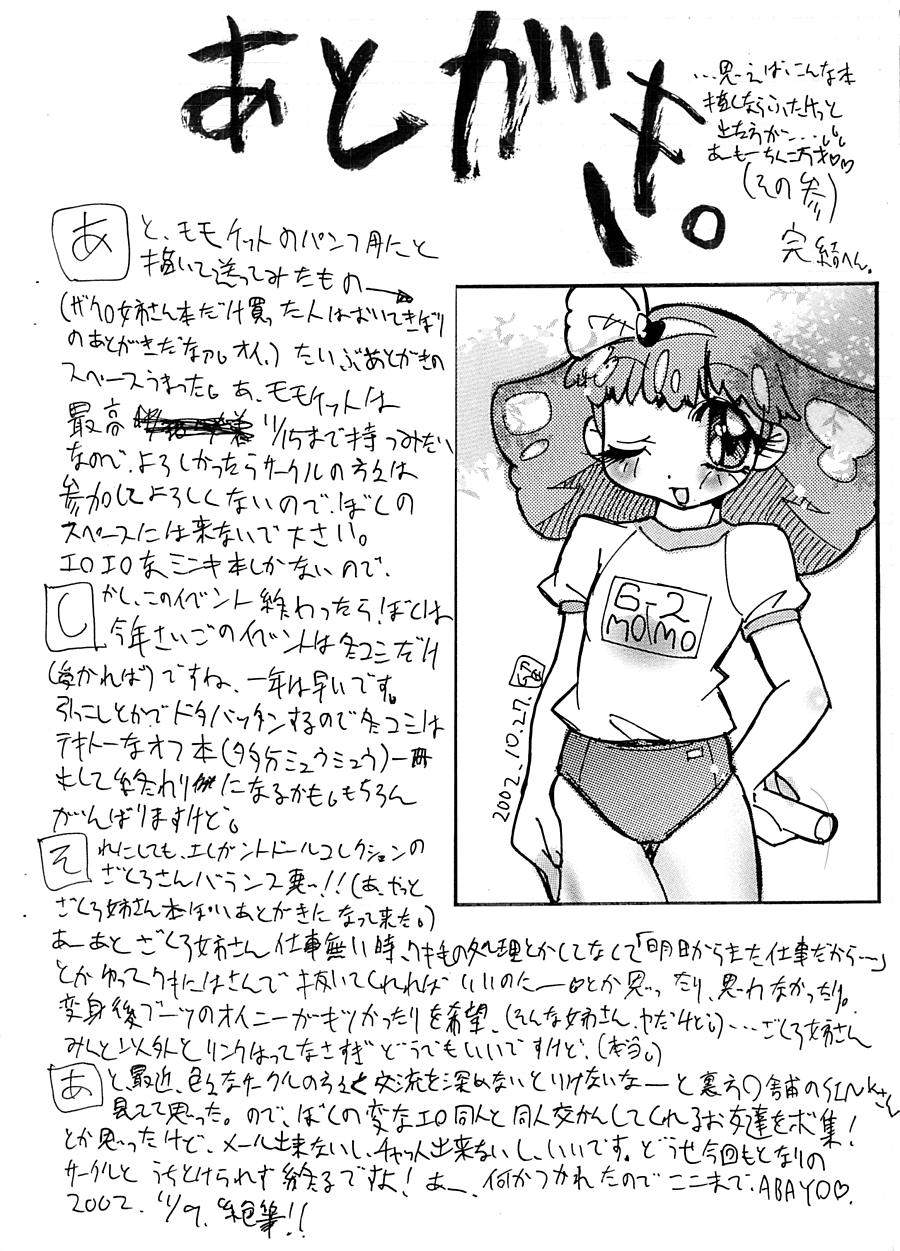 あとがき。
…思えば、こんな本
描くならふたけっと
出たろうが…
あーもーちんこ万才♡♡
(その参)
完結へん。
あと、モモケットのパンフ用にと
描いて送ってみたもの→
(ザクロ姉さん本だけ買った人はおいてきぼり
のあとがきだなァ。オイ、) たいぶあとがきの
スペースうまった。あ、モモケットは
最高 11/15まで持つみたい
なので、よろしかったらサークルの方々は
参加してよろしくないので、ぼくの
スペースには来ないで下さい。
エロエロなミンキ本しかないので、
しかし、このイベント終わったら、ぼくは
今年さいごのイベントは冬コミだけ
(受かれば)ですね、一年は早いです。
引っこしとかでドタバッタンするので冬コミは
テキトーなオフ本(多分ミュウミュウ)一冊
出して終わりになるかも。もちろん
がんばりますけど。
それにしても、エレガントドールコレクションの
ざくろさんバランス悪っ!!(あ、やっと
ざくろ姉さん本ぽいあとがきになって来た。)
あーあとざくろ姉さん仕事無い時、ワキ毛の処理とかしてなくて「明日からまた仕事だから…」
とかゆってワキにはさんで抜いてくれればいいのにーとか思ったり、思わなかったり。
変身後ブーツのオイニーがキツかったりを希望、(そんな姉さん、ヤだけど)…ざくろ姉さん
みんと以外とリンクはってなさすぎどうでもいいですけど、(本当。)
あと、最近、色々なサークルの方々と交流を深めないといけないなーと裏方〇舗のSINKさん
見てて思った。ので、ぼくの変なエロ同人と同人交かんしてくれるお友達をボ集!
とか思ったけど、メール出来ないし、チャット出来ないし、いいです。どうせ今回もとなりの
サークルと、うちとけられず終るですよ! あー、何かつかれたのでここまで、ABAYO♡.
2002. 11/9. 絶筆!!
6-2
MOMO
2002.10.27.